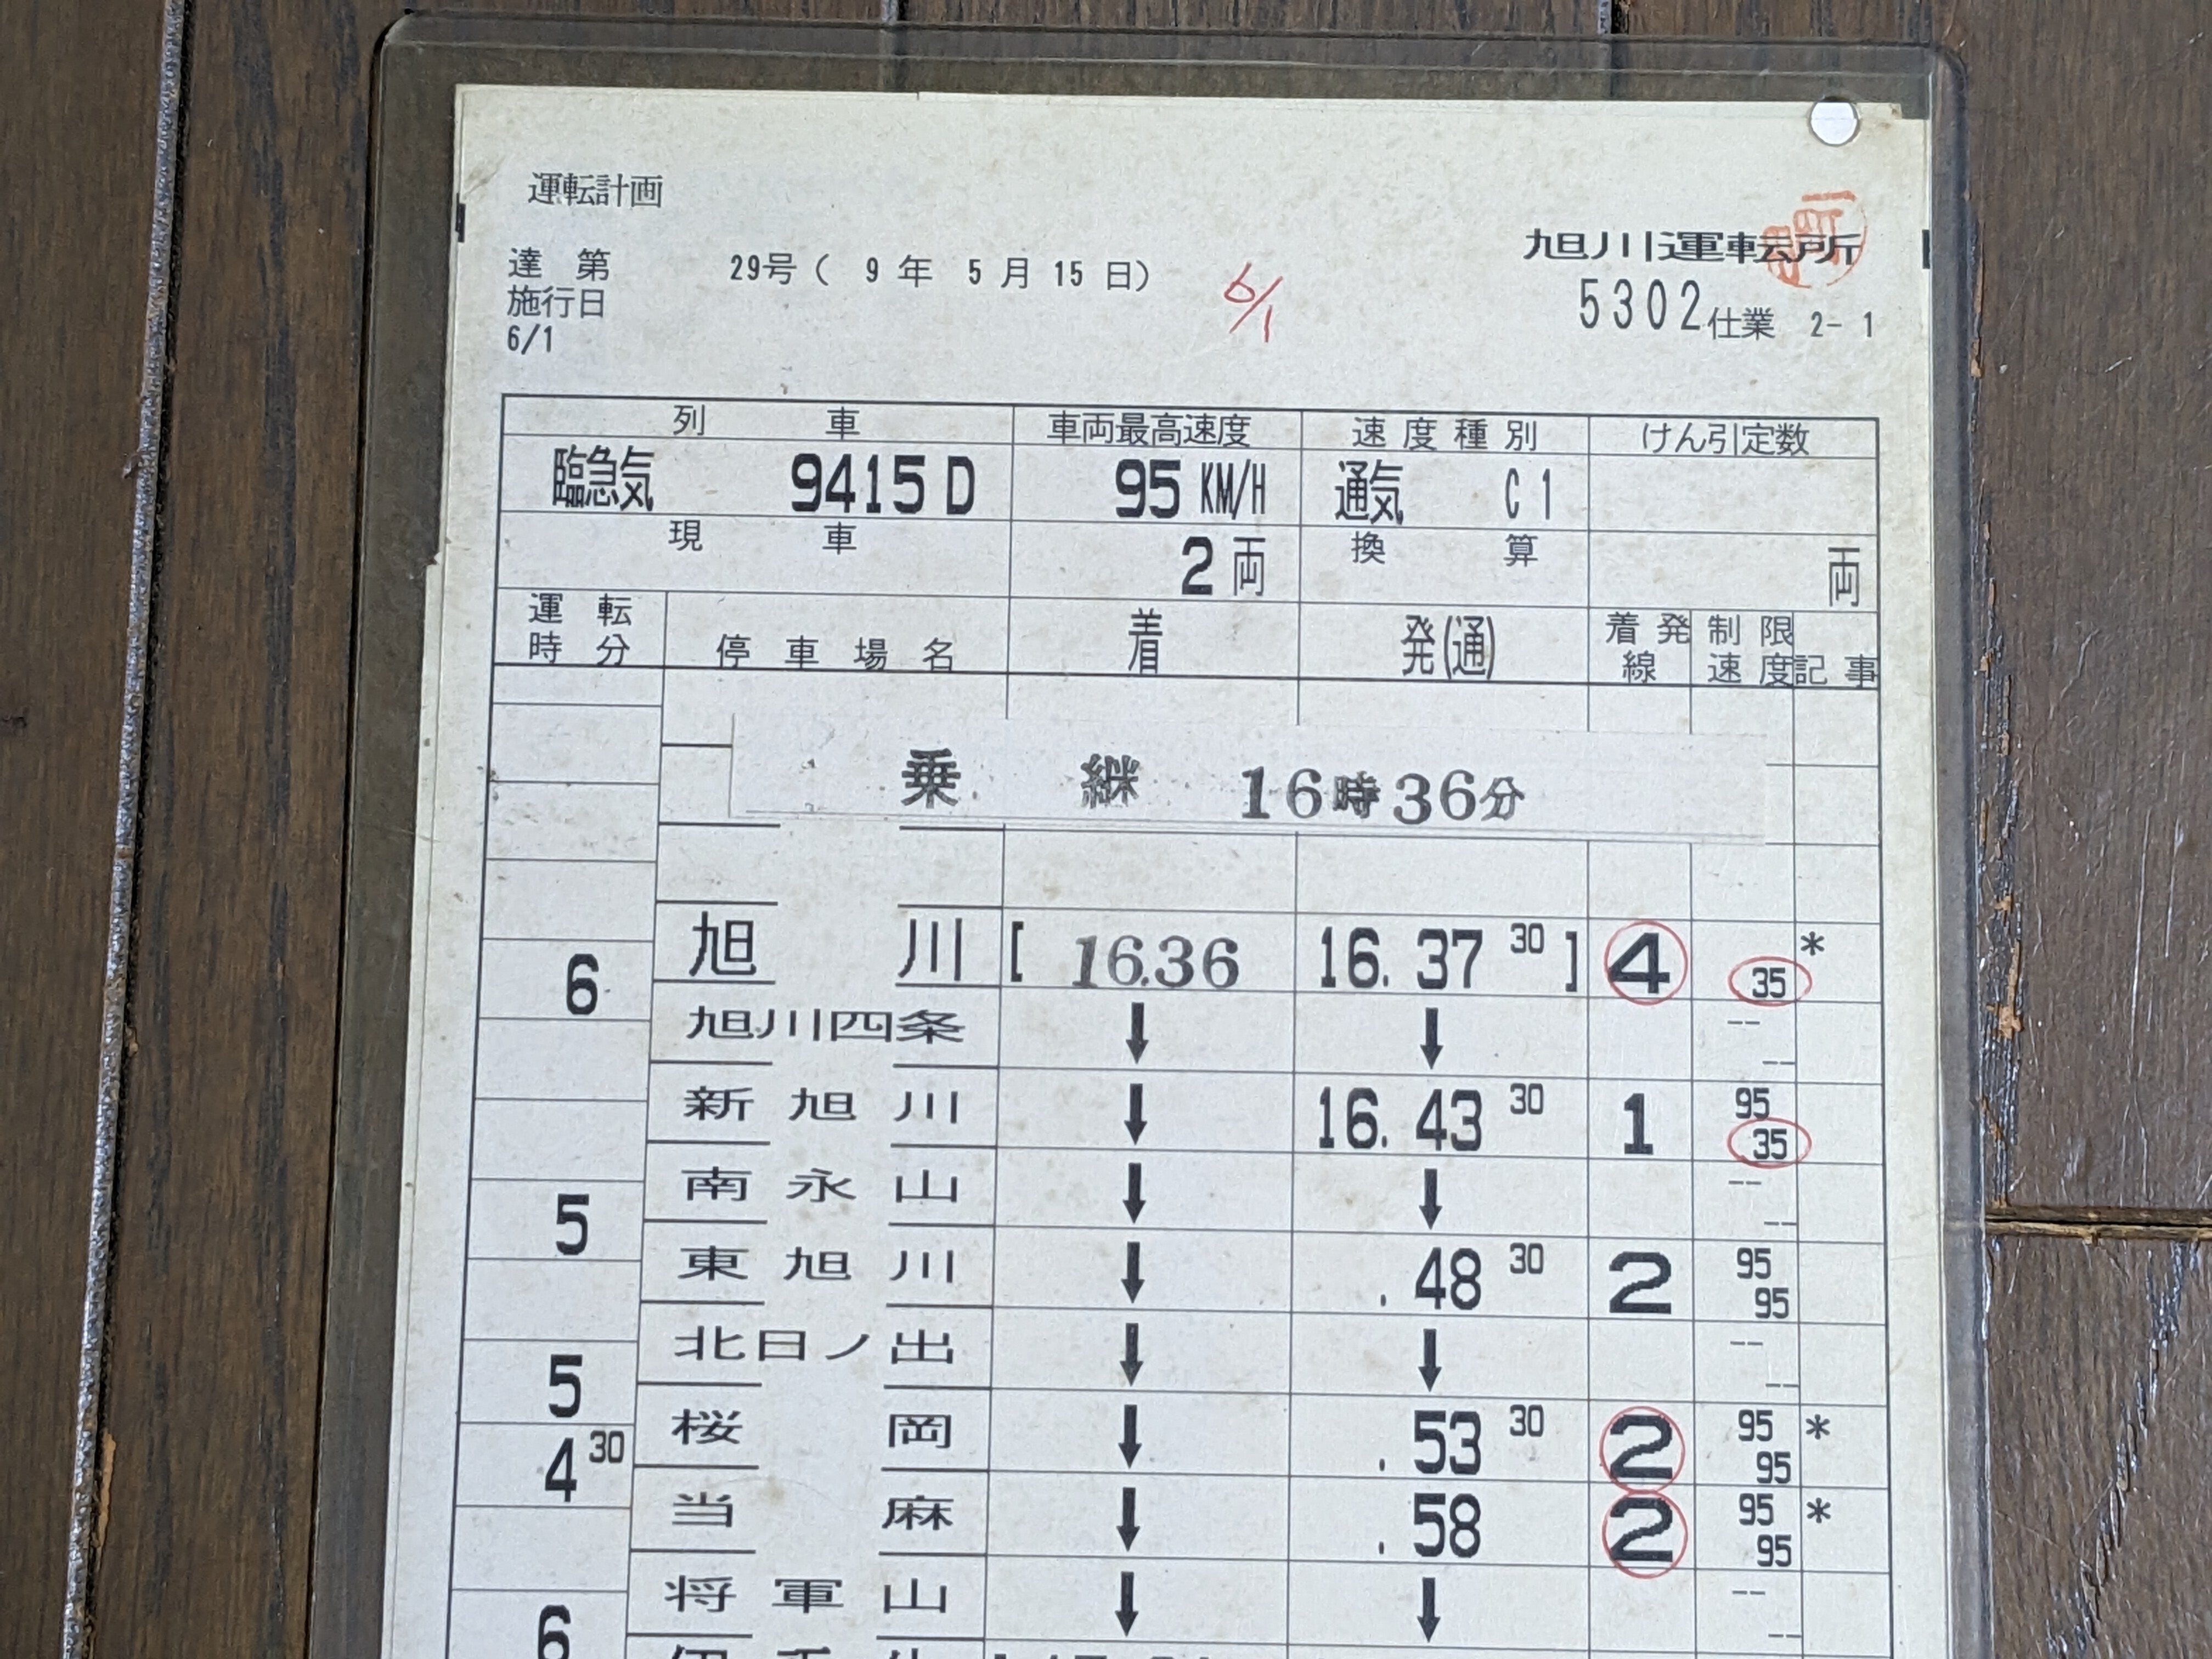 運転計画
達 第 29号( 9 年 5 月 15 日)
施行日
6/1
6/1
旭川運転所
5302仕業 2- 1
列 車 車両最高速度 速度種別 けん引定数
臨急気 9415D 95 KM/H 通気 C1
現 車 2両 換 算 両
運転時分 停車場名 着 発(通) 着発線 制限速度 記事
乗 継 16時36分
旭 川 [ 16.36 16. 37 30 ] 4 35 *
6
旭川四条 ↓ ↓ -- --
新旭川 ↓ 16. 43 30 1 95 35
南永山 ↓ ↓ -- --
5
東旭川 ↓ . 48 30 2 95 95
北日ノ出 ↓ ↓ -- --
5
桜 岡 ↓ . 53 30 2 95 95 *
4 30
当 麻 ↓ . 58 2 95 95 *
将軍山 ↓ ↓ -- --
6